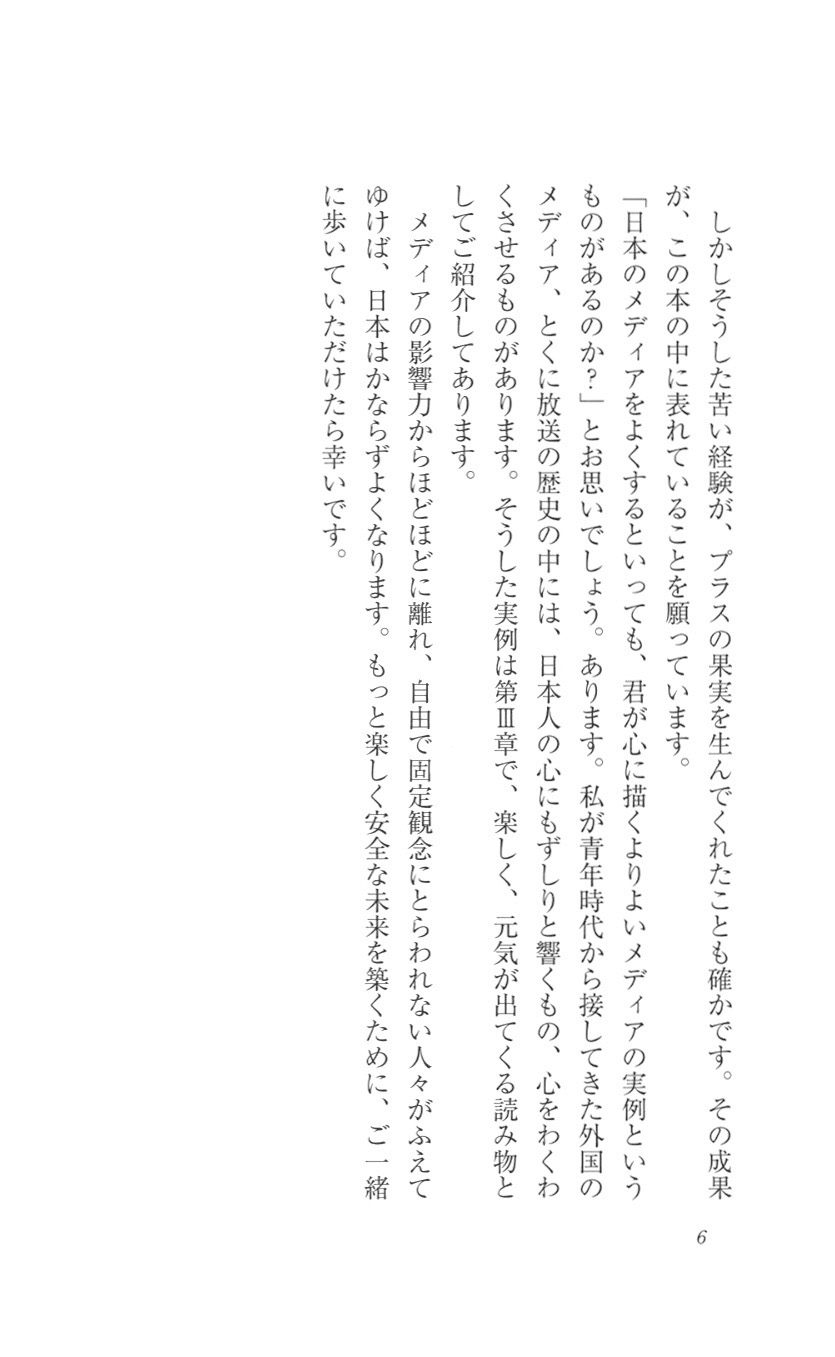 しかしそうした苦い経験が、プラスの果実を生んでくれたことも確かです。その成果
が、この本の中に表れていることを願っています。
「日本のメディアをよくするといっても、君が心に描くよりよいメディアの実例という
ものがあるのか？」とお思いでしょう。あります。私が青年時代から接してきた外国の
メディア、とくに放送の歴史の中には、日本人の心にもずしりと響くもの、心をわくわ
くさせるものがあります。そうした実例は第Ⅲ章で、楽しく、元気が出てくる読み物と
してご紹介してあります。
　メディアの影響力からほどほどに離れ、自由で固定観念にとらわれない人々がふえて
ゆけば、日本はかならずよくなります。もっと楽しく安全な未来を築くために、ご一緒
に歩いていただけたら幸いです。
6